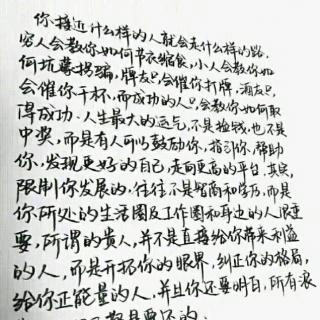 你接近什么样的人就会走什么样的路,
穷人会教你如何节衣缩食,小人会教你如
何坑蒙拐骗,牌友只会催你打牌,酒友只
会催你干杯,而成功的人只会教你如何取
得成功.人生最大的运气,不是捡钱,也不是
中奖,而是有人可以鼓励你,指引你,帮助
你,发现更好的自己,走向更高的平台,其实,
限制你发展的,往往不是智商和学历,而是
你所处的生活圈及工作圈和身边的人很重
要,所谓的贵人,并不是直接给你带来利益
的人,而是开拓你的眼界,纠正你的格局,
给你正能量的人,并且你还要明白,所有
都是要还的.